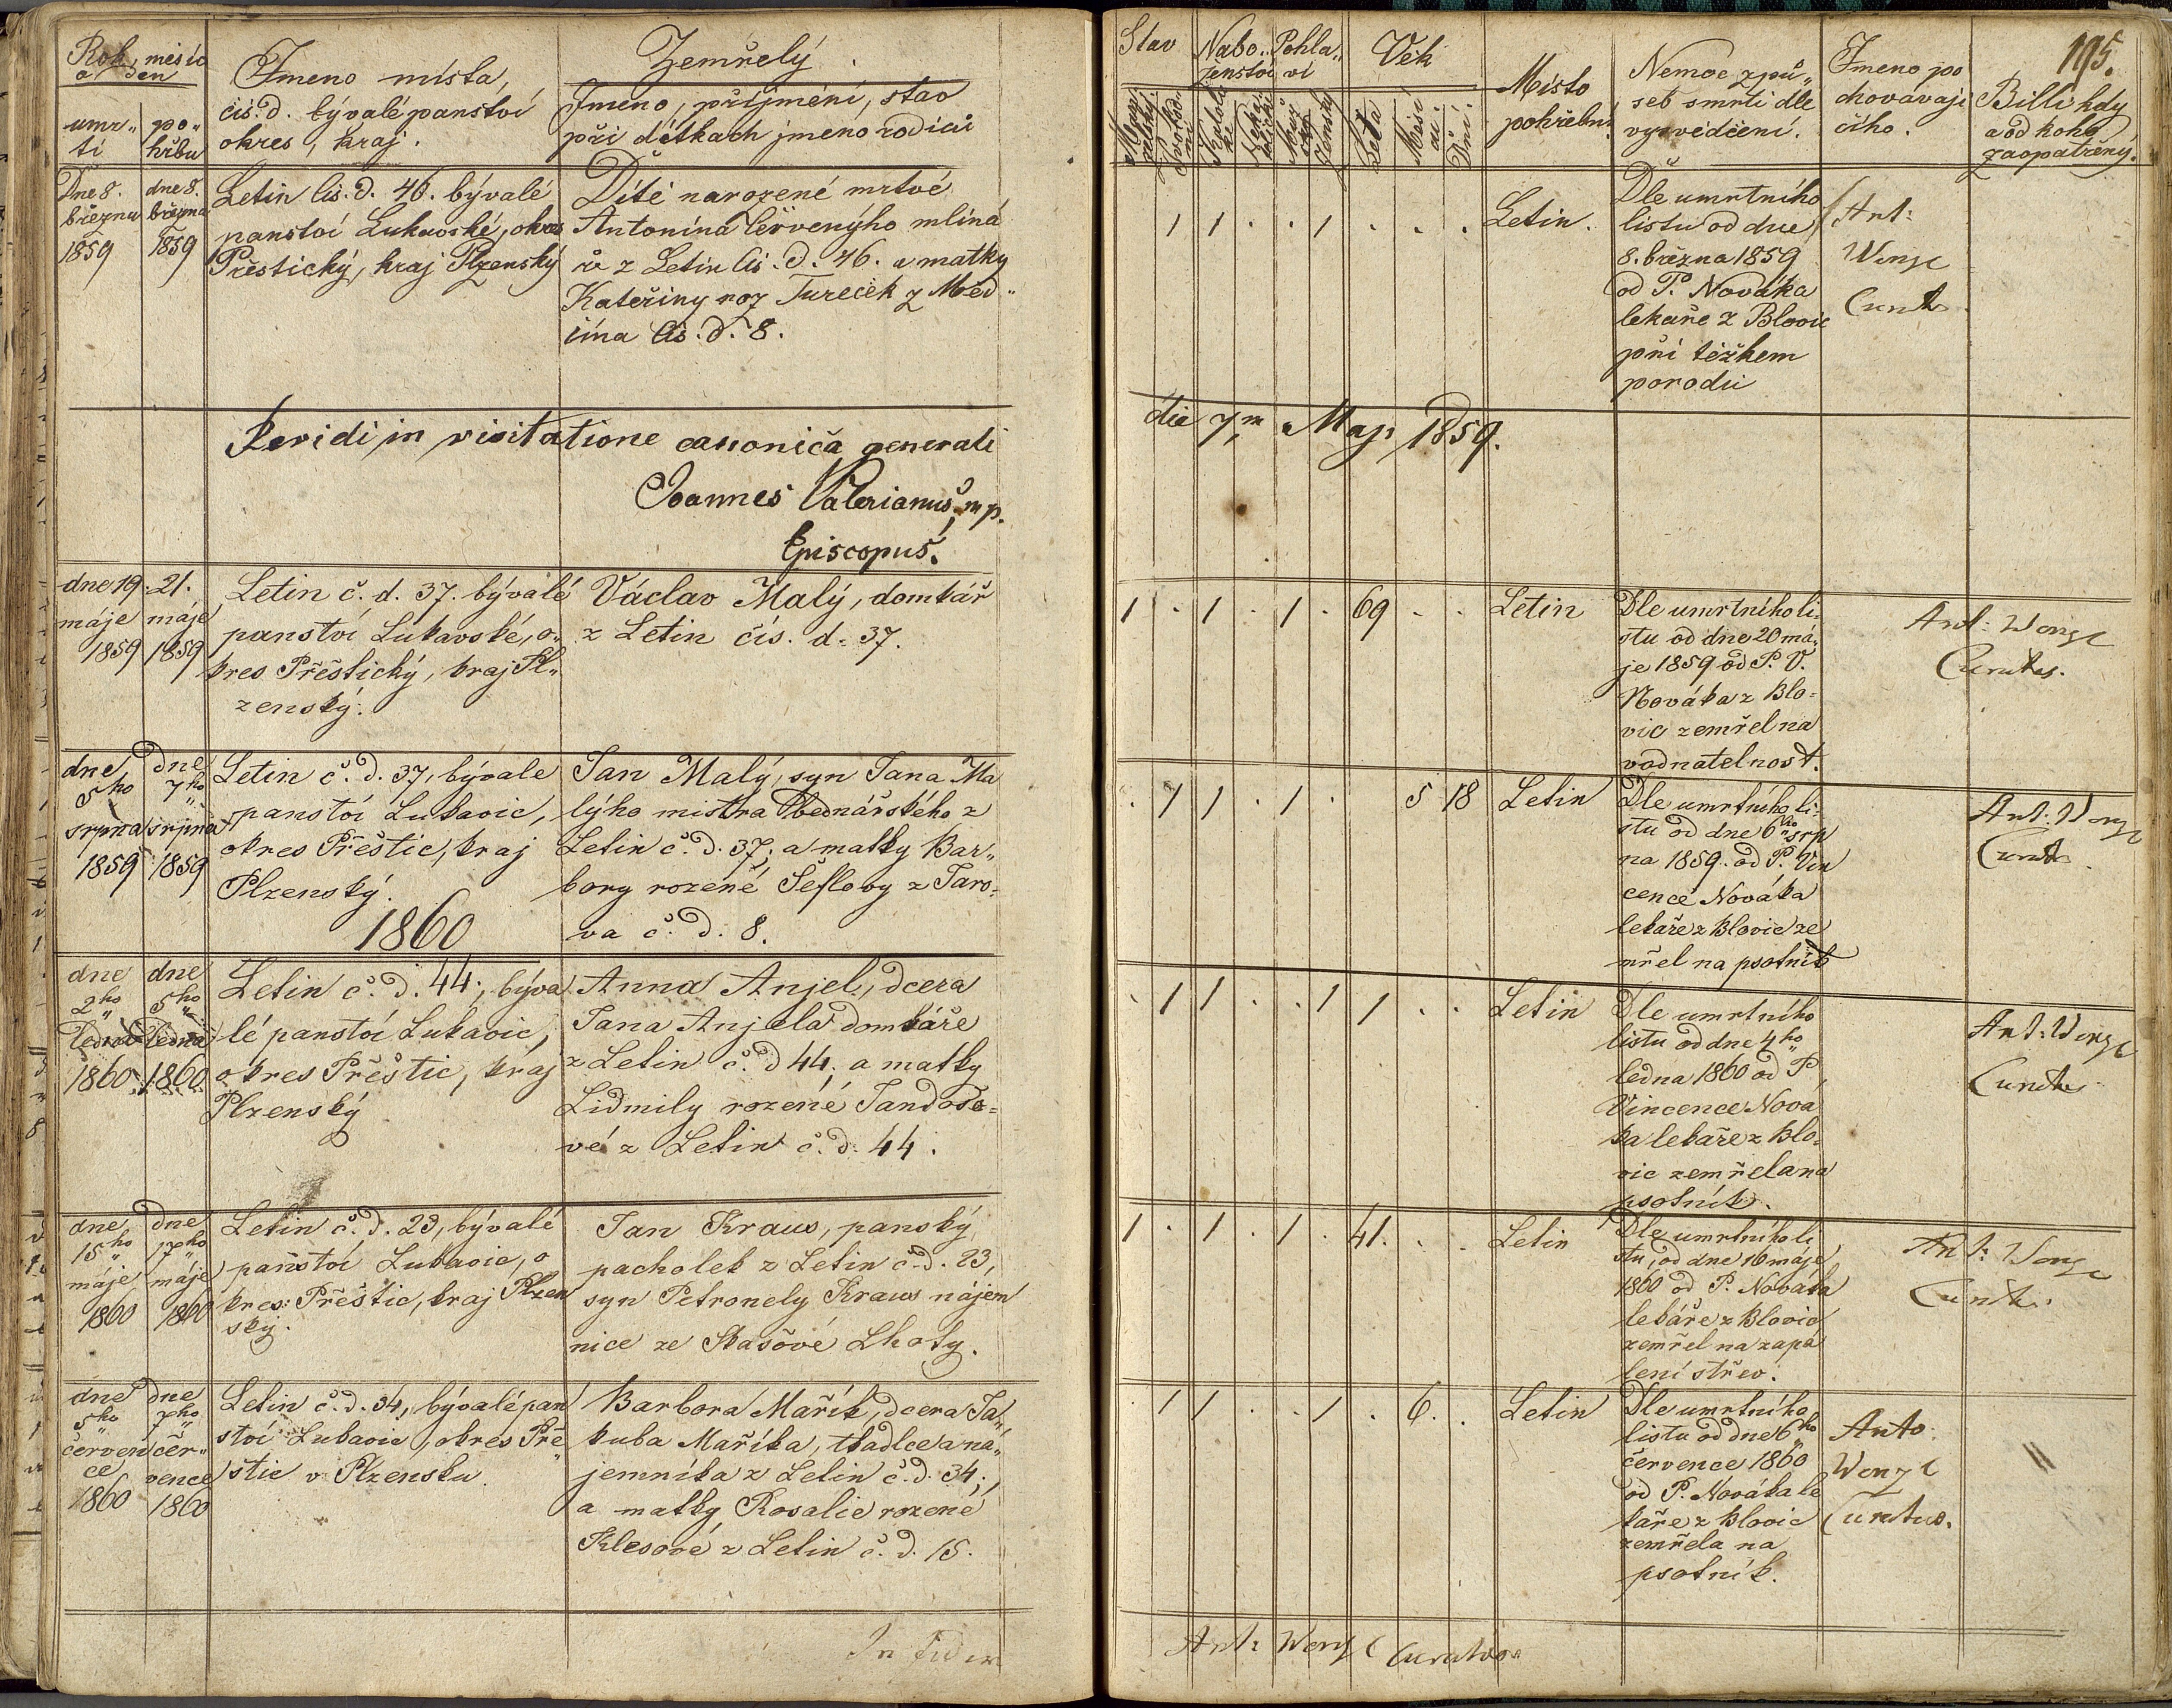 Rok, měsíc
a den
umr„
tí
po„
hřbu
Jmeno místa,
čís. d. bývalé panství
okres, kraj.
Zemřelý.
Jmeno, příjmění, stav
při dítkach jmeno rodičů
Dne 8.
března
1859
dne 8.
března
1859
Letin čís. d. 46. bývalé
panství Lukavské, okres
Přestický, kraj Plzenský
Dítě narozené mrtvé
Antonína Červenýho mliná
ře z Letin čís. d. 46. a matky
Kateřiny roz Tureček z Měd„
čína čís. d. 8.
Revidi in visitatione canonica generali
Joannes Valerianus, mp.
Episcopus.
dne 19.
máje
1859
21.
máje
1859
Letin č. d. 37. bývalé
panství Lukavské, o„
kres Přeštický, kraj Pl„
zenský.
Václav Malý, domkář
z Letin čís. d. 37.
dne
5ho
srpna
1859
dne
7ho
srpna
1859
Letin č. d. 37, bývale
panství Lukavic,
okres Přeštic, kraj
Plzenský.
Jan Malý, syn Jana Ma
lýho mistra bednářského z
Letin č. d. 37; a matky Bar„
bory rozené Šeflovy z Jaro„
va č. d. 8.
1860
dne
2ho
ledna
1860
dne
5ho
ledna
1860
Letin č. d. 44., býva
lé panství Lukavic,
okres Přeštic, kraj
Plzenský
Anna Anjel, dcera
Jana Anjela domkáře
z Letin č. d 44; a matky
Lidmily rozené Jandodo=
vé z Letin č. d. 44.
dne
15ho
máje
1860
dne
17ho
máje
1860
Letin č. d. 23, bývalé
panství Lukavic, o
kres Přeštic, kraj Plzen
ský.
Jan Kraus, panský
pacholek z Letin č. d. 23,
syn Petronely Kraus nájem
nice ze Skašové Lhoty.
dne
5ho
červen
ce
1860
dne
7ho
čer„
vence
1860
Letin č. d. 34, bývalé pan
ství Lukavic, okres Pře
štic v Plzensku.
Barbora Mařík, dcera Ja„
kuba Maříka, tkadlce a na„
jemníka z Letin č. d. 34;
a matky Rosalie rozené
Klesové z Letin č. d. 15.
In fidem
Stav
Nabo„
ženství
Pohla„
ví
Věk
Leta
Měsí
ců.
Dní.
Místo
pohřebu.
Nemoc způ„
seb smrti dle
vysvědčení.
Jmeno po
chovávají
cího.
195.
Billi kdy
a od koho
zaopatřený.
1 1 . . 1 . . .
Letin.
Dle umrtního
listu od dne
8. března 1859
od P. Nováka
lekaře z Blovic
při těžkem
porodu
Ant:
Wenzl
Curatus
die 7m Maji 1859.
1 . 1 . 1 . 69 . .
Letin
Dle umrtního li„
stu od dne 20 má„
je 1859 od P. V.
Nováka z Blo=
vic zemřel na
vodnatelnost.
Ant: Wenzl
Curatus.
. 1 1 . 1 . 5 18
Letin
Dle umrtního li„
stu od dne 6ho srp
na 1859. od P. Vin
cence Nováka
lekaře z Blovic ze
mřel na psotník
Ant: Wenzl
Curatus
. 1 1 . . 1 1 . .
Letin
Dle umrtního
listu od dne 4ho
ledna 1860 od P.
Vincence Nova
ka lekaře z Blo„
vic zemřela na
psotník.
Ant: Wenzl
Curatus
1 . 1 . 1 . 41. . .
Letin
Dle umrtního li
stu, od dne 16 máje
1860 od P. Nováka
lekáře z Blovic
zemřel na zapa
lení střev.
Ant: Wenzl
Curatus.
. 1 1 . . 1 . 6. .
Letin
Dle umrtního
listu od dne 6ho
července 1860
od P. Nováka le
kaře z Blovic
zemřela na
psotník.
Anto.
Wenzl
Curatus.
Ant: Wenzl Curatus